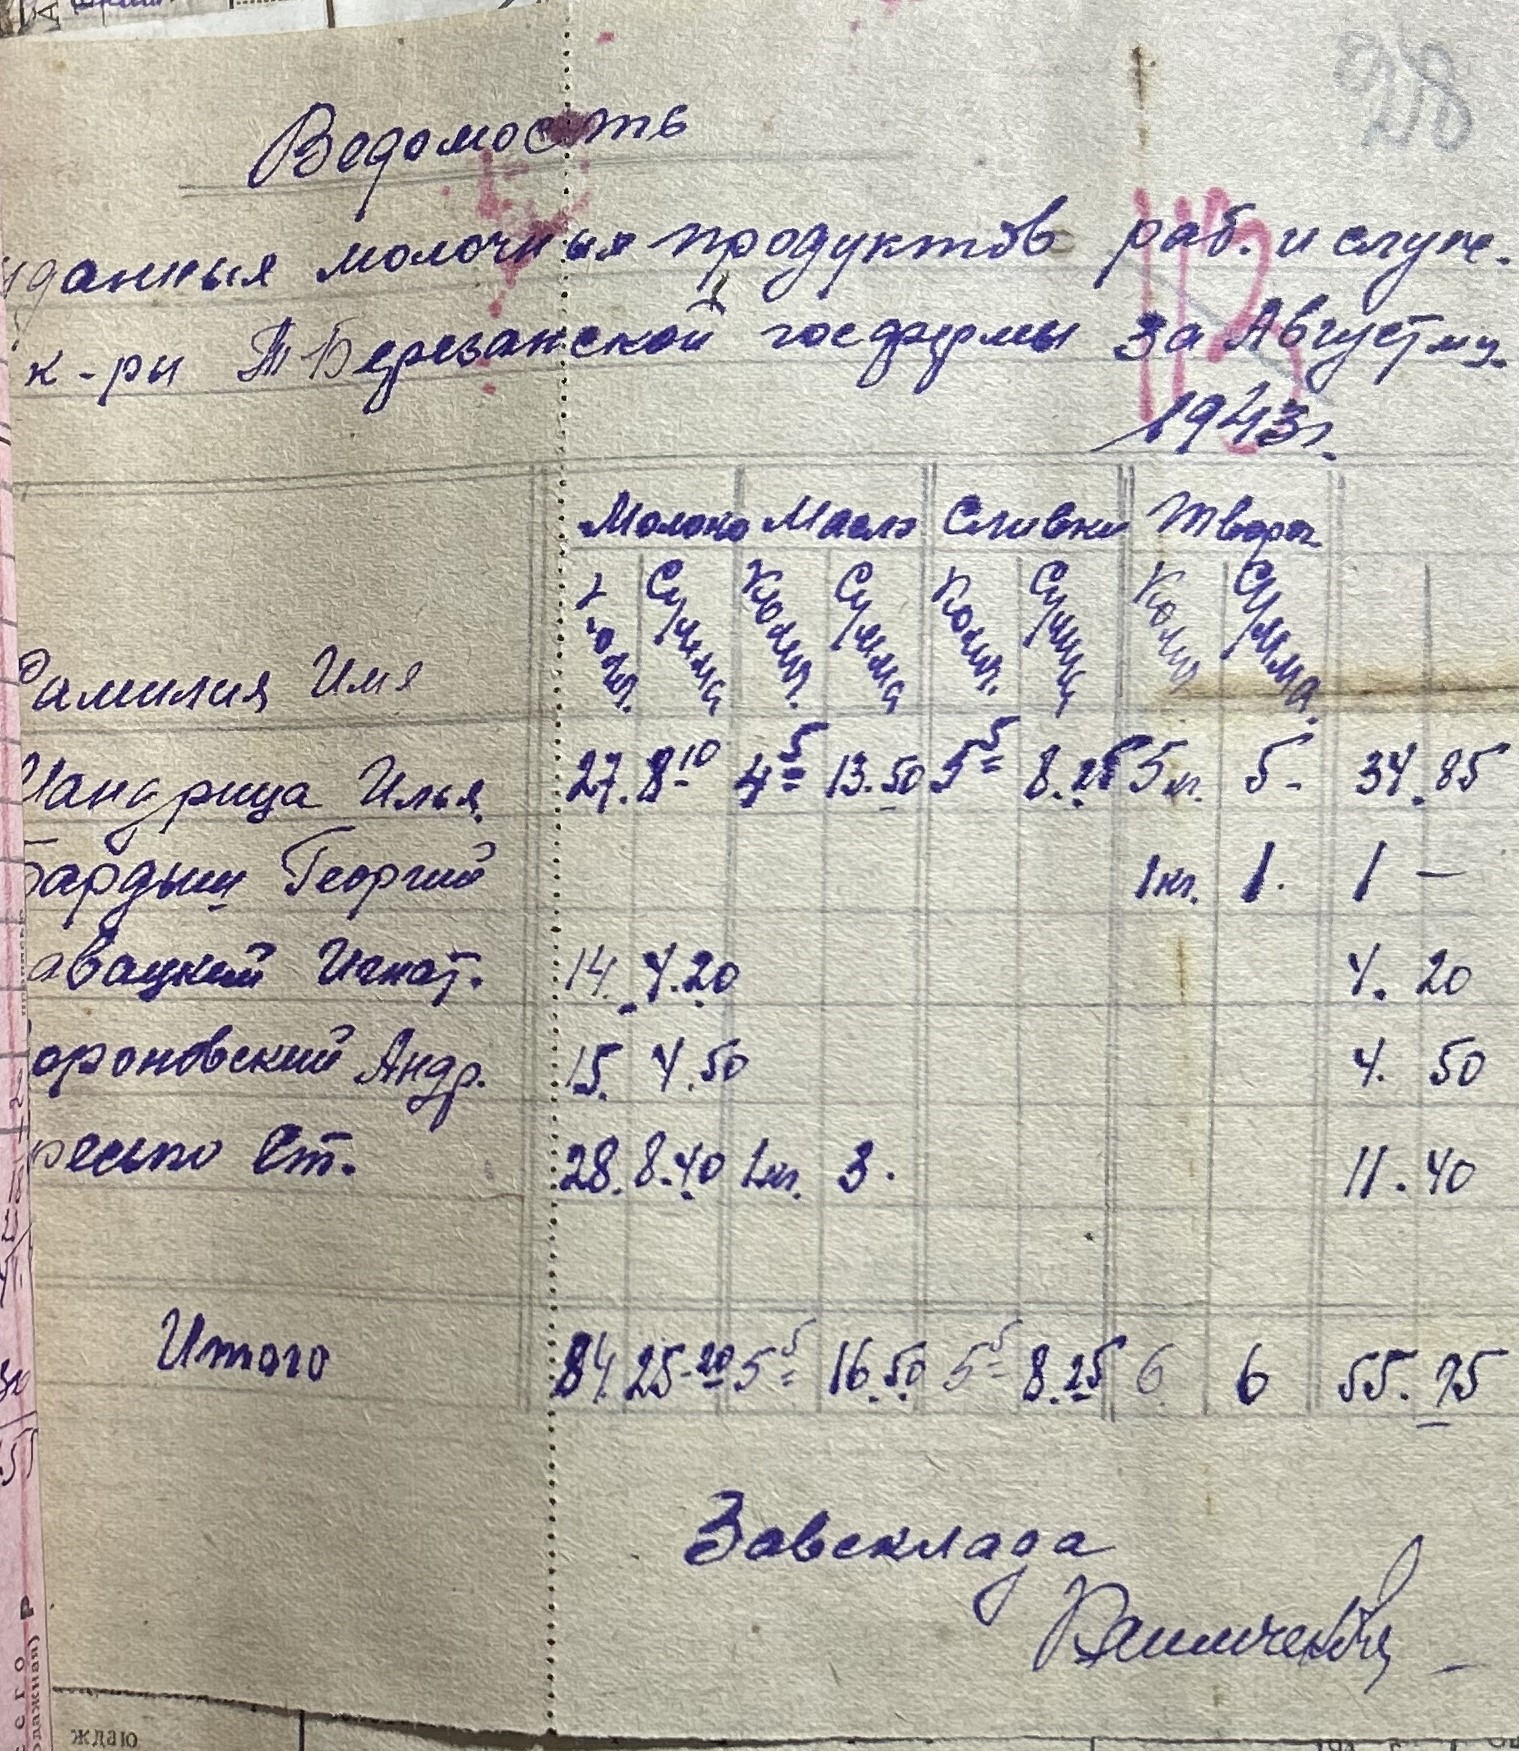 28
Ведомость
данныя молочныя продуктов раб. и служ.
к-ры Березанской госфермы за Август м-ц.
1943 г.
Молоко Масло Сливки Творог
Фамилия Имя Колич. Сумма Колич. Сумма Колич. Сумма Колич. Сумма.
Мандрица Илья. 27. 8-10 4 5 13.50 5 5 8.25 5 кг. 5- 34.85
Бардыш Георгий 1 кг. 1. 1 —
авацкий Игнат. 14. 4.20 4. 20
ороновский Андр. 15. 4.50 4. 50
Ст. 28. 8.40 1 кг. 3. 11.40
Итого 84. 25-20 5 5 16.50 5 5 8.25 6 6 55.95
Завсклада
ждаю